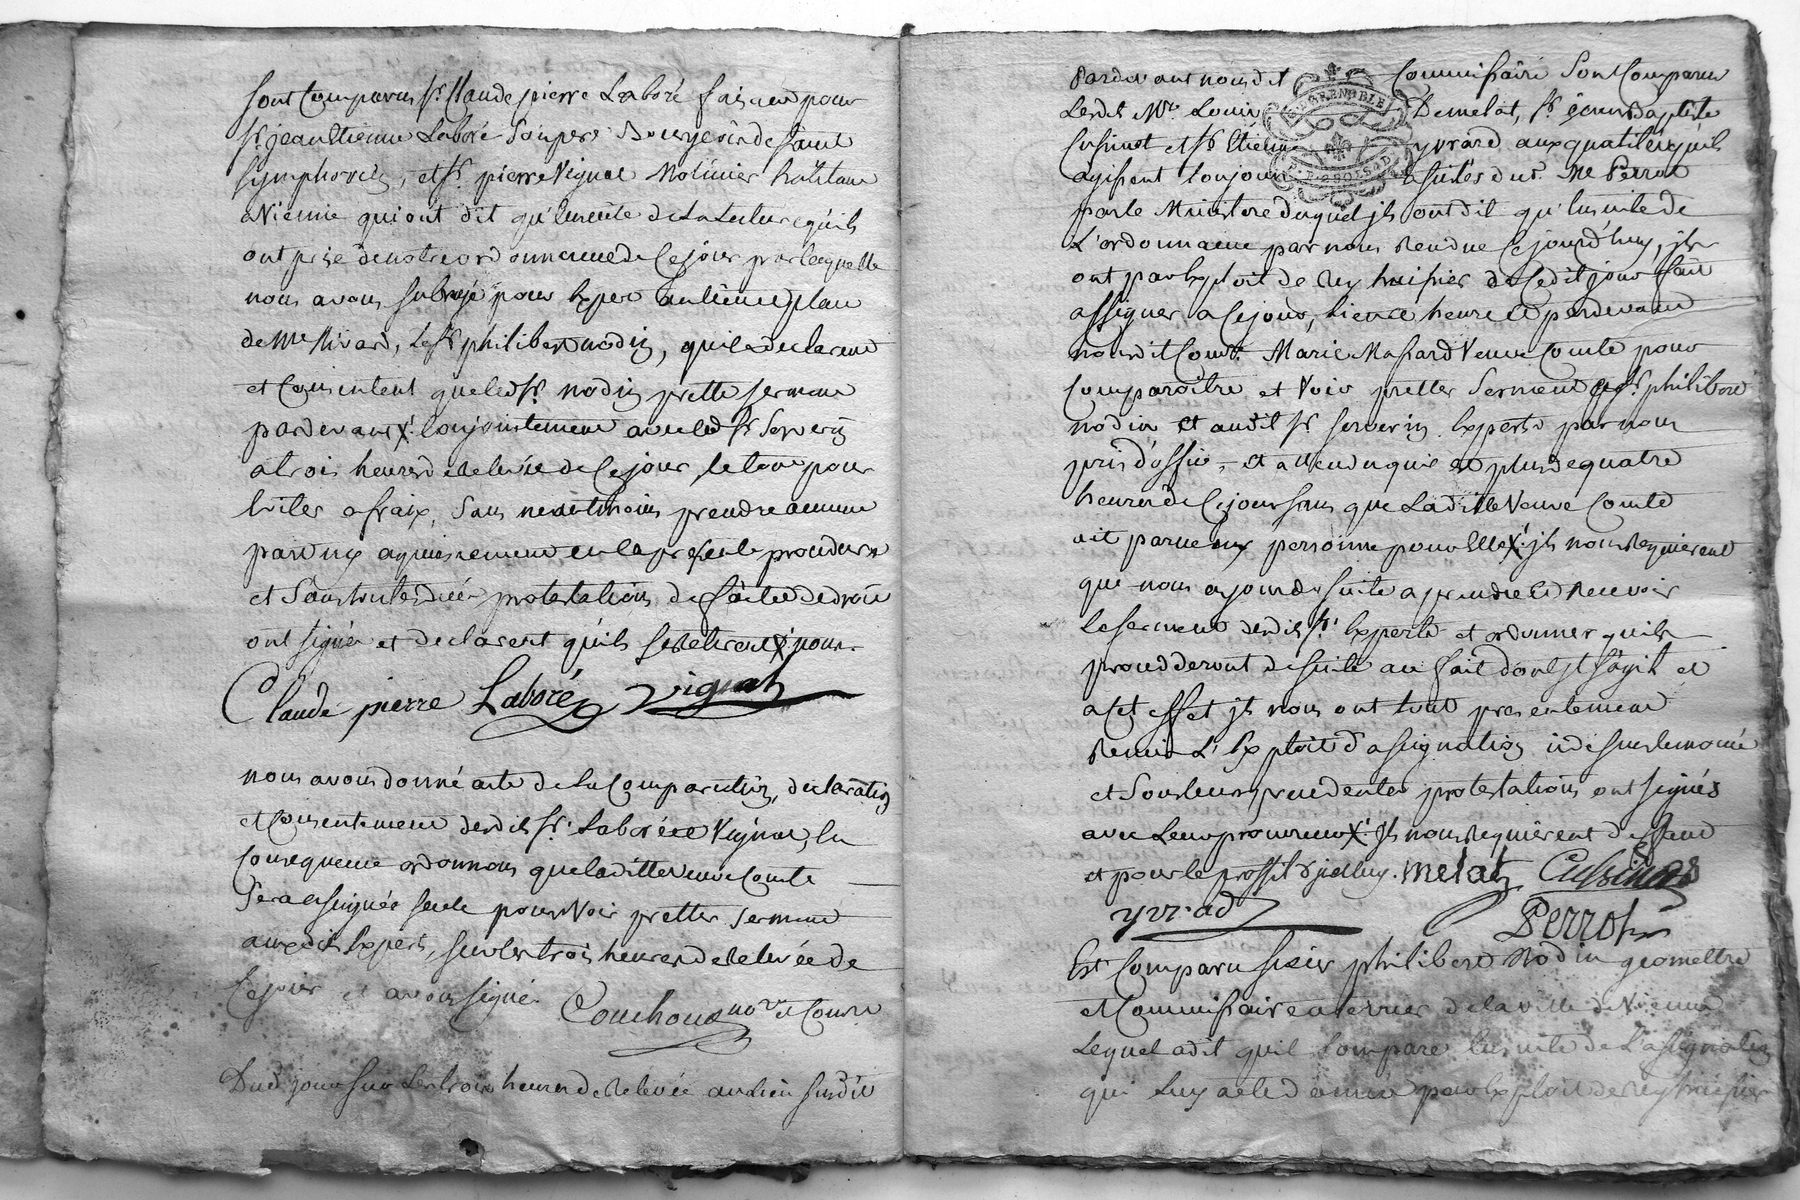 sont Comparus Sr. Claude pierre Laboré faisant pour
Sr. jean Etienne Laboré Son pere Bourgeois de saint
symphorien, et Sr. pierre Vignat Notaire habitant
a Vienne qui ont dit qu'ensuite de la lecture qu'ils
ont prise de notre ordonnance de Ce jour par laquelle
nous avons subrogé pour Expert au lieu et place
de Me Rivard, Le Sr philibert nodin, qu'ils declarent
et Consentent que led. Sr. nodin prette serment
pardevant X. Conjointement avec led. Sr Serverin
a trois heures de Relevée de Ce jour, le tout pour
Eviter a fraix, Sans neantmoins prendre aucune
part ny acquiescement en la presente procedure
et Sous toutes dues protestations de fait et de droit
ont signé et declarent qu'ils se Retirent X. pour
Claude pierre Laboré Vignat
nous avons donné acte de la Comparution, declaration
et Consentement desdits Srs. Laboré et Vignat, En
Consequence ordonnons que laditte veuve Comte
Sera assignée seule pour Voir pretter serment
auxdits Experts, sur les trois heures de Relevée de
Ce jour et avons signé Couchoud nore. et Comre
Dud. jour sur Les trois heures de Relevée au Lieu susdit
Pardevant nousdit Commissaire Sont Comparus
GRENOBLE
Lesdits Mre Louis Demelat, Sr. jean Baptiste
Cusinet et Sr Etienne yvrard aux qualités qu'ils
agissent toujours assistés dud. Me Perrot
par le Ministere duquel jls ont dit qu'Ensuite de
L'ordonnance par nous Rendue Ce jourd'huy, jls
ont par Exploit de Rey huissier de Cedit jour fait
assigner a Ce jour, lieu et heure et pardevant
nousdit Comre. Marie Massard Veuve Comte pour
Comparoitre et Voir pretter Serment aud. Sr. philibert
nodin et audit Sr. serverin Experts par nous
pris d'office, et attendu qu'il est plus de quatre
heures de Ce jour sans que Laditte Veuve Comte
ait paru ny personne pour Elle X. jls nous Requierent
que nous ayons de suite a prendre et Recevoir
Le serment desdits Srs. Experts et ordonner qu'ils
procedderont de suite au fait dont Il s'agit et
a Cet effet jls nous ont tout presentement
Remis L'Exploit d'assignation cidessus enoncé
et Sous leurs precedentes protestations ont signés
avec Leur procureur X. jls nous Requièrent deffaut
et pour le proffit d'jcelluy. melat Cusinet
yvrad Perrot
Est Comparu sieur philibert Nodin geomettre
et Commissaire a terrier de la ville de Vienne
Lequel a dit qu'il Compare Ensuite de L'assignation
qui Luy a eté donnée par Exploit de Rey huissier